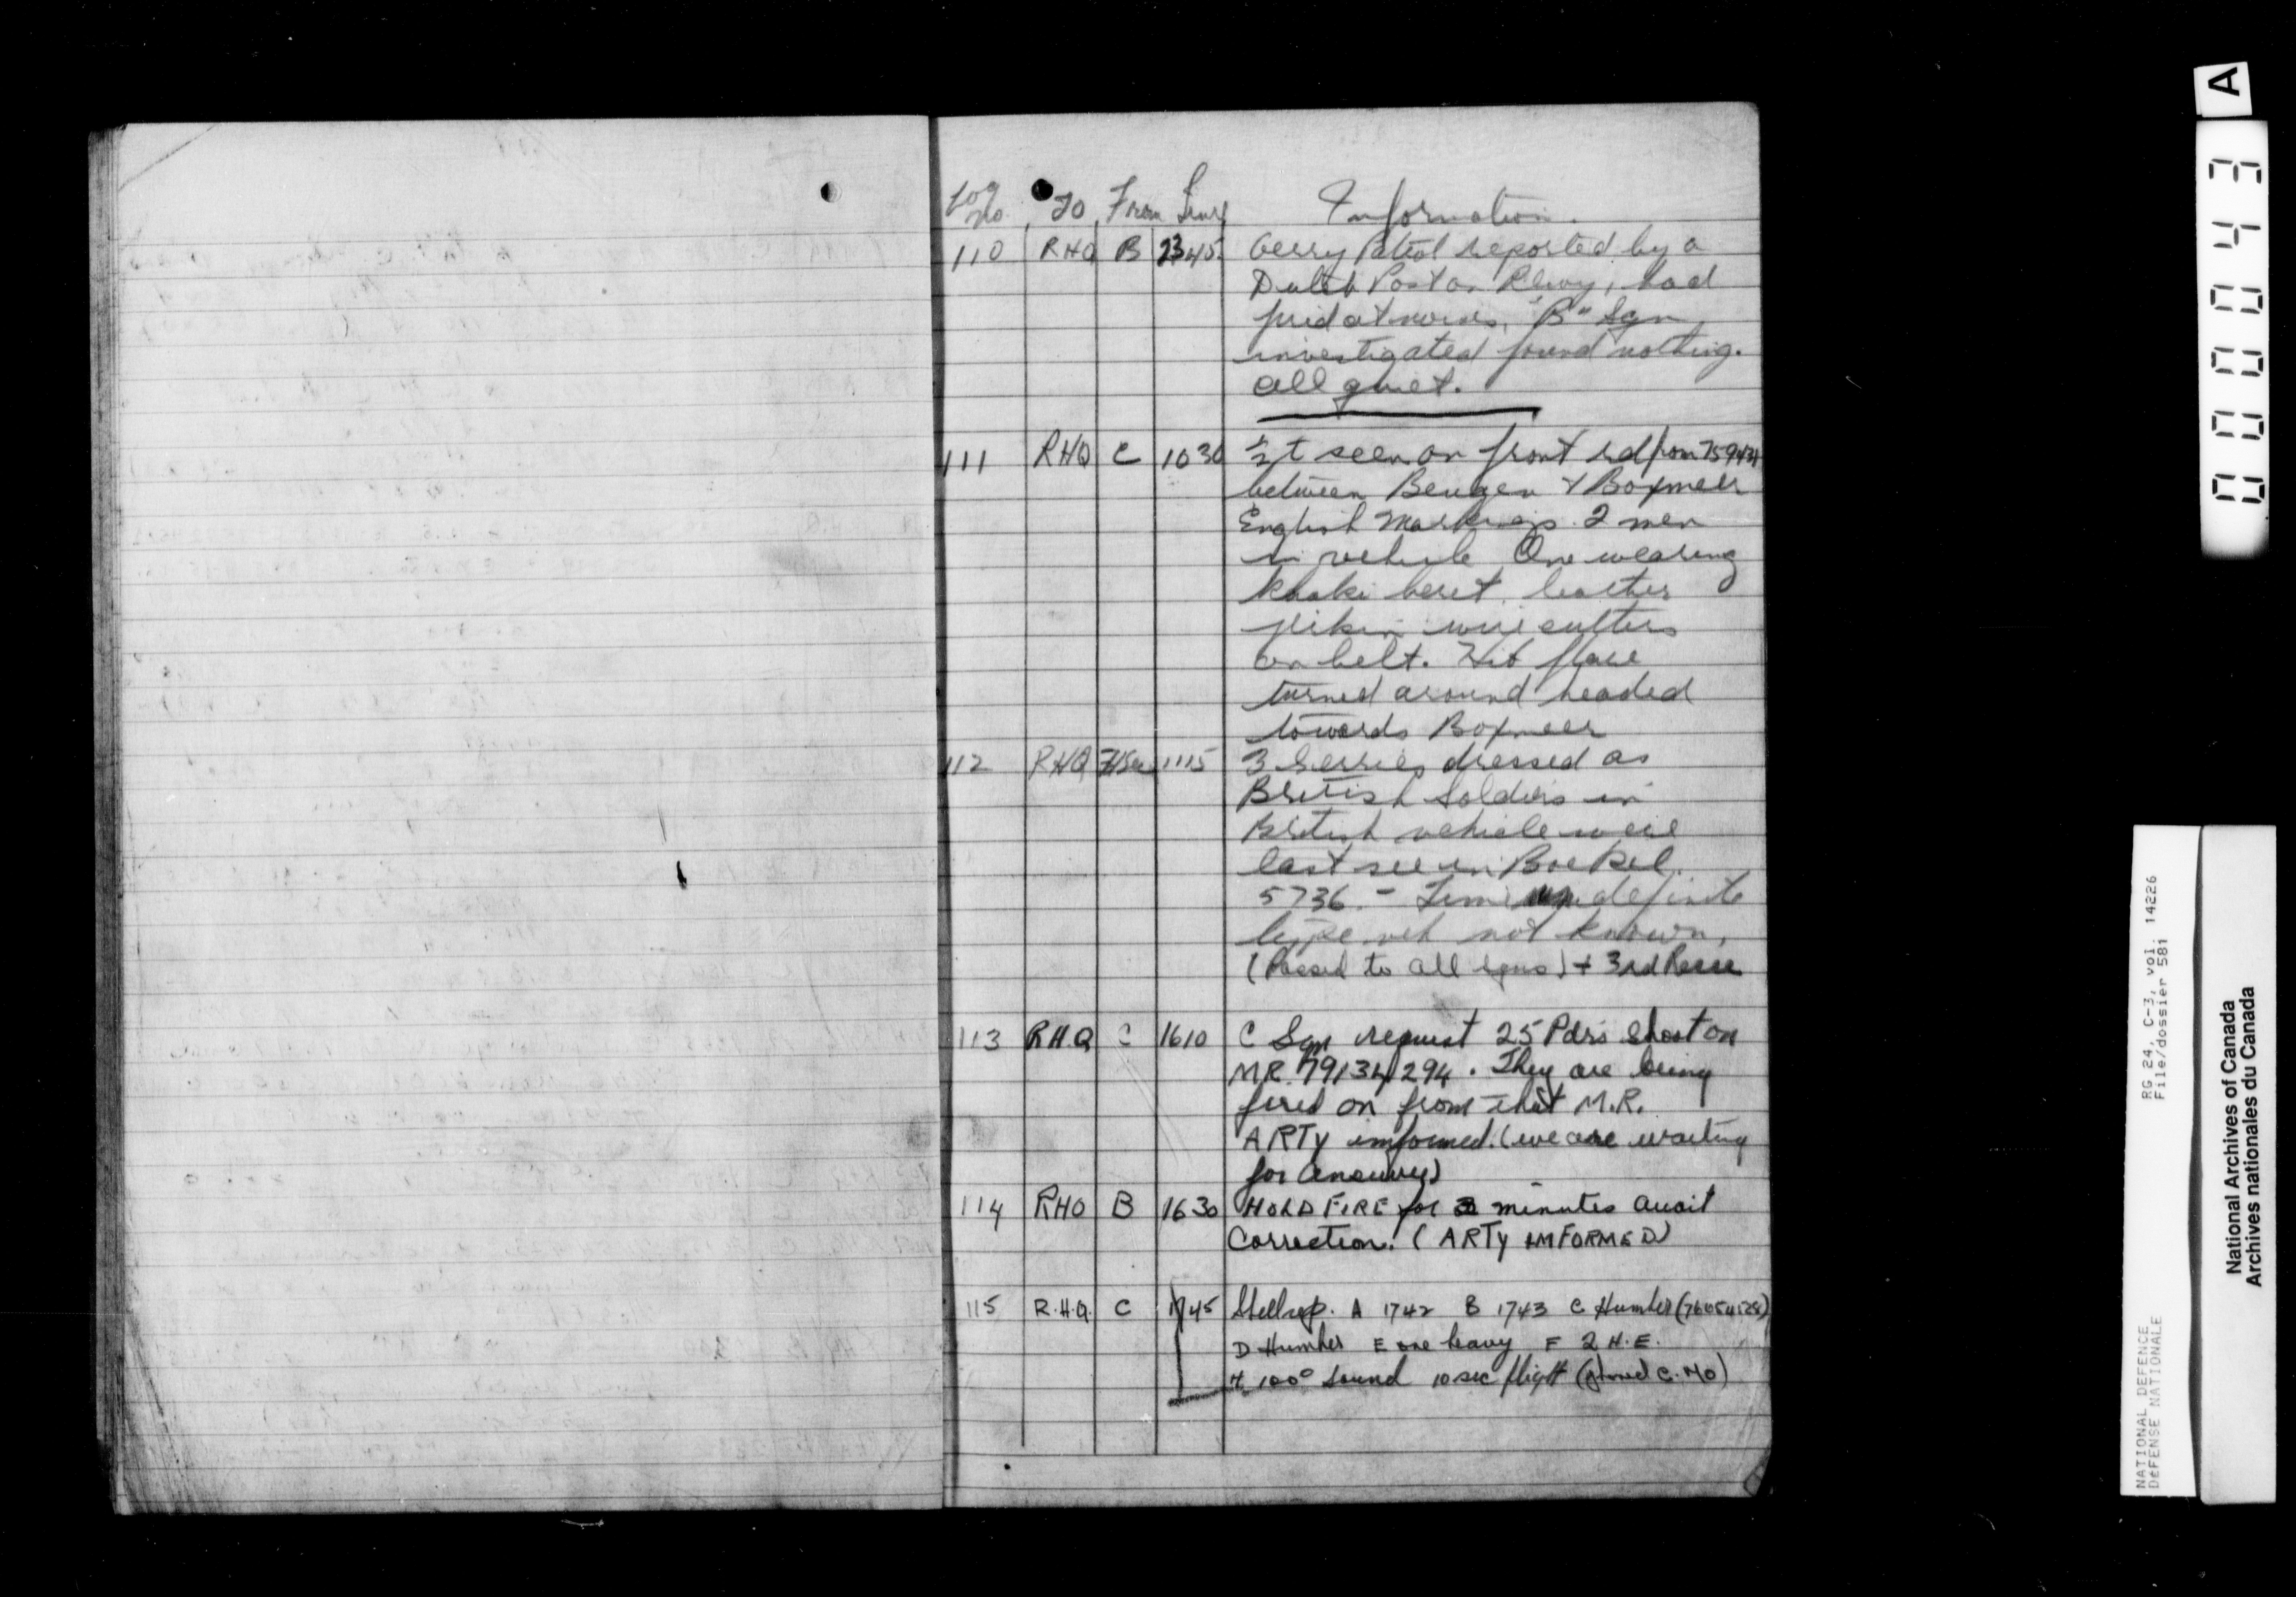 Log No. To From Time Information.
110 RHQ B 2345. Gerry Patrol reported by a
Dutch Post on Rlwy, had
fired at noises, "B" Sqn
investigated found nothing.
all quiet.
111 RHQ C 1030 ½ t seen on front rd from
between Beugen & Boxmeer
English Markings. 2 men
in vehicle One wearing
khaki beret. leather
jerkin wire cutters
on belt. Hit flare
turned around headed
towards Boxmeer
112 RHQ 1115 3 Gerries dressed as
British Soldiers in
British vehicle were
last see in Boekel.
5736 - Time indefinite
type veh not known,
(Passed to all sqns) + 3rd Recce
113 R.H.Q C 1610 C Sqn request 25 Pdrs shoot on
MR. 79134294. They are being
fired on from that M.R.
ARTY imformed. (we are waiting
for answer)
114 RHQ B 1630 HOLD FIRE for minutes await
Correction. (ARTY IMFORMED)
115 R.H.Q. C 1745 Shellrep. A 1742 B 1743 C Humber
D Humber E one heavy F 2 H.E.
H 100° Sound 10 sec flight (phoned C.MO)
A
000043
NATIONAL DEFENCE RG 24, C-3, vol. 14226
DÉFENSE NATIONALE File/dossier 581
National Archives of Canada
Archives nationales du Canada